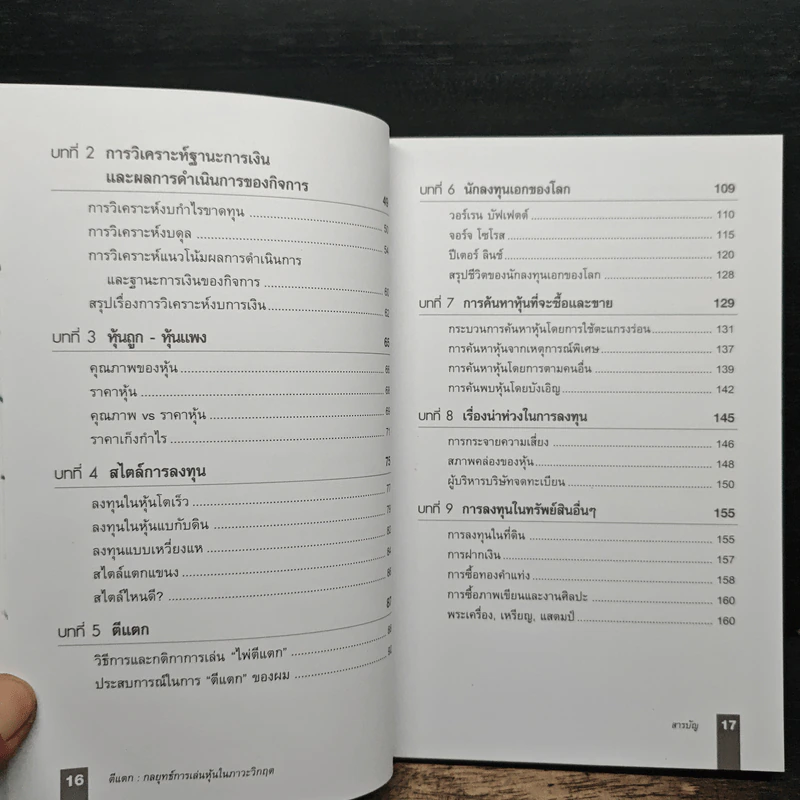 บทที่ 2 การวิเคราะห์ฐานะการเงิน
และผลการดำเนินการของกิจการ 49
การวิเคราะห์งบกำไรขาดทุน 50
การวิเคราะห์งบดุล 54
การวิเคราะห์แนวโน้มผลการดำเนินการ
และฐานะการเงินของกิจการ 60
สรุปเรื่องการวิเคราะห์งบการเงิน 62
บทที่ 3 หุ้นถูก - หุ้นแพง 65
คุณภาพของหุ้น 66
ราคาหุ้น 68
คุณภาพ vs ราคาหุ้น 69
ราคาเก็งกำไร 71
บทที่ 4 สไตล์การลงทุน 75
ลงทุนในหุ้นโตเร็ว 77
ลงทุนในหุ้นแบกับดิน 79
ลงทุนแบบเหวี่ยงแห 80
สไตล์แตกแขนง 84
สไตล์ไหนดี? 86
บทที่ 5 ตีแตก 87
วิธีการและกติกาการเล่น “ไพ่ตีแตก” 88
ประสบการณ์ในการ “ตีแตก” ของผม
16 ตีแตก : กลยุทธ์การเล่นหุ้นในภาวะวิกฤต
บทที่ 6 นักลงทุนเอกของโลก 109
วอร์เรน บัฟเฟตต์ 110
จอร์จ โซโรส 115
ปีเตอร์ ลินช์ 120
สรุปชีวิตของนักลงทุนเอกของโลก 128
บทที่ 7 การค้นหาหุ้นที่จะซื้อและขาย 129
กระบวนการค้นหาหุ้นโดยการใช้ตะแกรงร่อน 131
การค้นหาหุ้นจากเหตุการณ์พิเศษ 137
การค้นหาหุ้นโดยการตามคนอื่น 139
การค้นพบหุ้นโดยบังเอิญ 142
บทที่ 8 เรื่องน่าห่วงในการลงทุน 145
การกระจายความเสี่ยง 146
สภาพคล่องของหุ้น 148
ผู้บริหารบริษัทจดทะเบียน 150
บทที่ 9 การลงทุนในทรัพย์สินอื่นๆ 155
การลงทุนในที่ดิน 155
การฝากเงิน 157
การซื้อทองคำแท่ง 158
การซื้อภาพเขียนและงานศิลปะ 160
พระเครื่อง, เหรียญ, แสตมป์ 160
สารบัญ 17